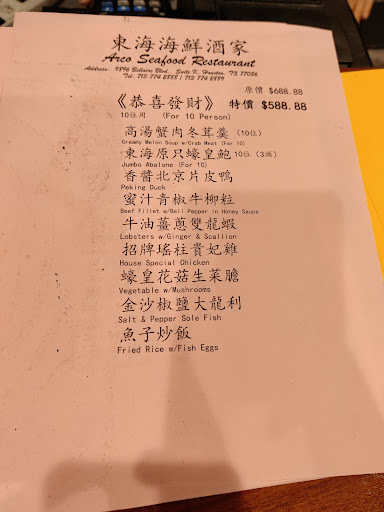 東海海鮮酒家
Arco Seafood Restaurant
Address: 9896 Bellaire Blvd., Suite K, Houston, TX 77036
Tel: 713 774 2888 | 713 774 2889
原價 $688.88
《恭喜發財》 特價 $588.88
10位用 (For 10 Person)
高湯蟹肉冬茸羹 (10位)
Creamy Melon Soup w/Crab Meat (For 10)
東海原只蠔皇鮑 10位 (3頭)
Jumbo Abalone (For 10)
香醬北京片皮鴨
Peking Duck
蜜汁青椒牛柳粒
Beef Fillet w/Bell Pepper in Honey Sauce
牛油薑蔥雙龍蝦
Lobsters w/Ginger & Scallion
招牌瑤柱貴妃雞
House Special Chicken
蠔皇花菇生菜膽
Vegetable w/Mushrooms
金沙椒鹽大龍利
Salt & Pepper Sole Fish
魚子炒飯
Fried Rice w/Fish Eggs